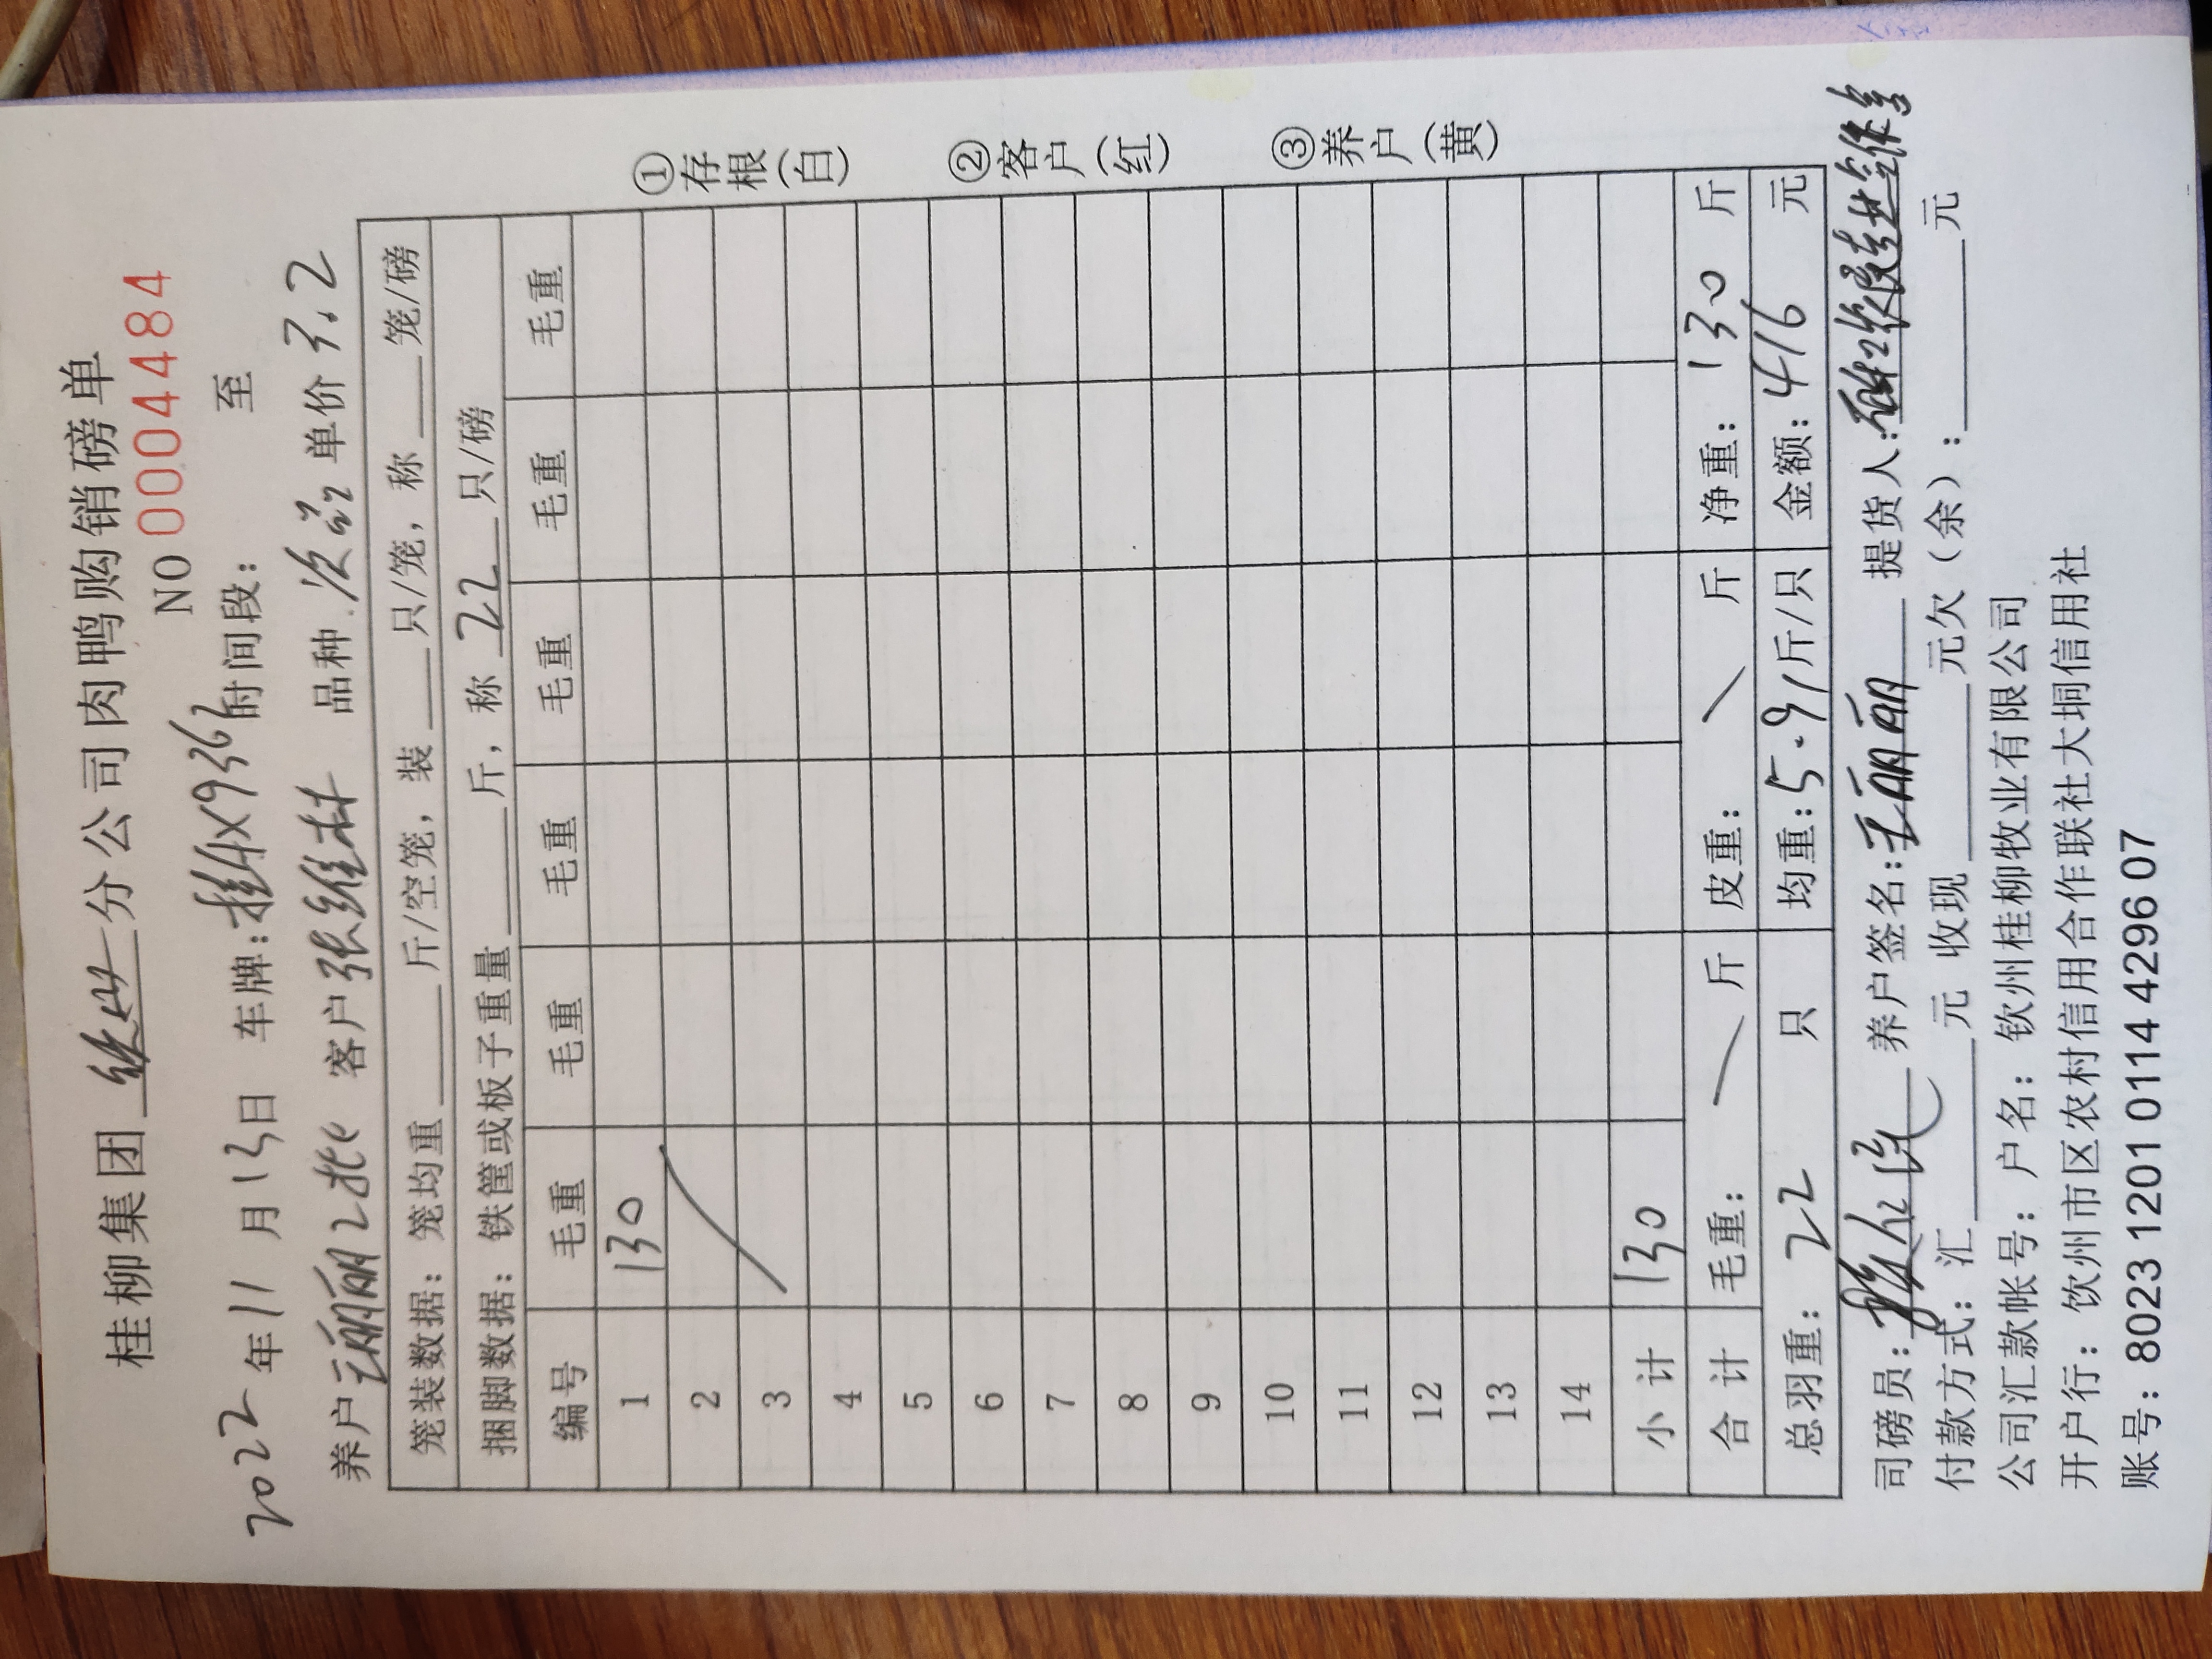 桂柳集团 分公司肉鸭购销磅单
NO 0004484
2022年11月13日 车牌:桂4X9367时间段: 至
养户 王丽丽2批 客户 张维林 品种 次品 单价 3.2
笼装数据: 笼均重 斤/空笼, 装 只/笼, 称 笼/磅
捆脚数据: 铁筐或板子重量 斤, 称 22 只/磅
编号 毛重 毛重 毛重 毛重 毛重 毛重
1 130
2
3
4
5
6
7
8
9
10
11
12
13
14
小计 130
合计 毛重: 斤 皮重: 斤 净重: 130 斤
总羽重: 22 只 均重:5.91斤/只 金额:416 元
司磅员: 养户签名:王丽丽 提货人:
付款方式: 汇 元 收现 元欠(余): 元
公司汇款帐号: 户名: 钦州桂柳牧业有限公司
开户行: 钦州市区农村信用合作联社大垌信用社
账号: 8023 1201 0114 4296 07
①存根(白)
②客户(红)
③养户(黄)